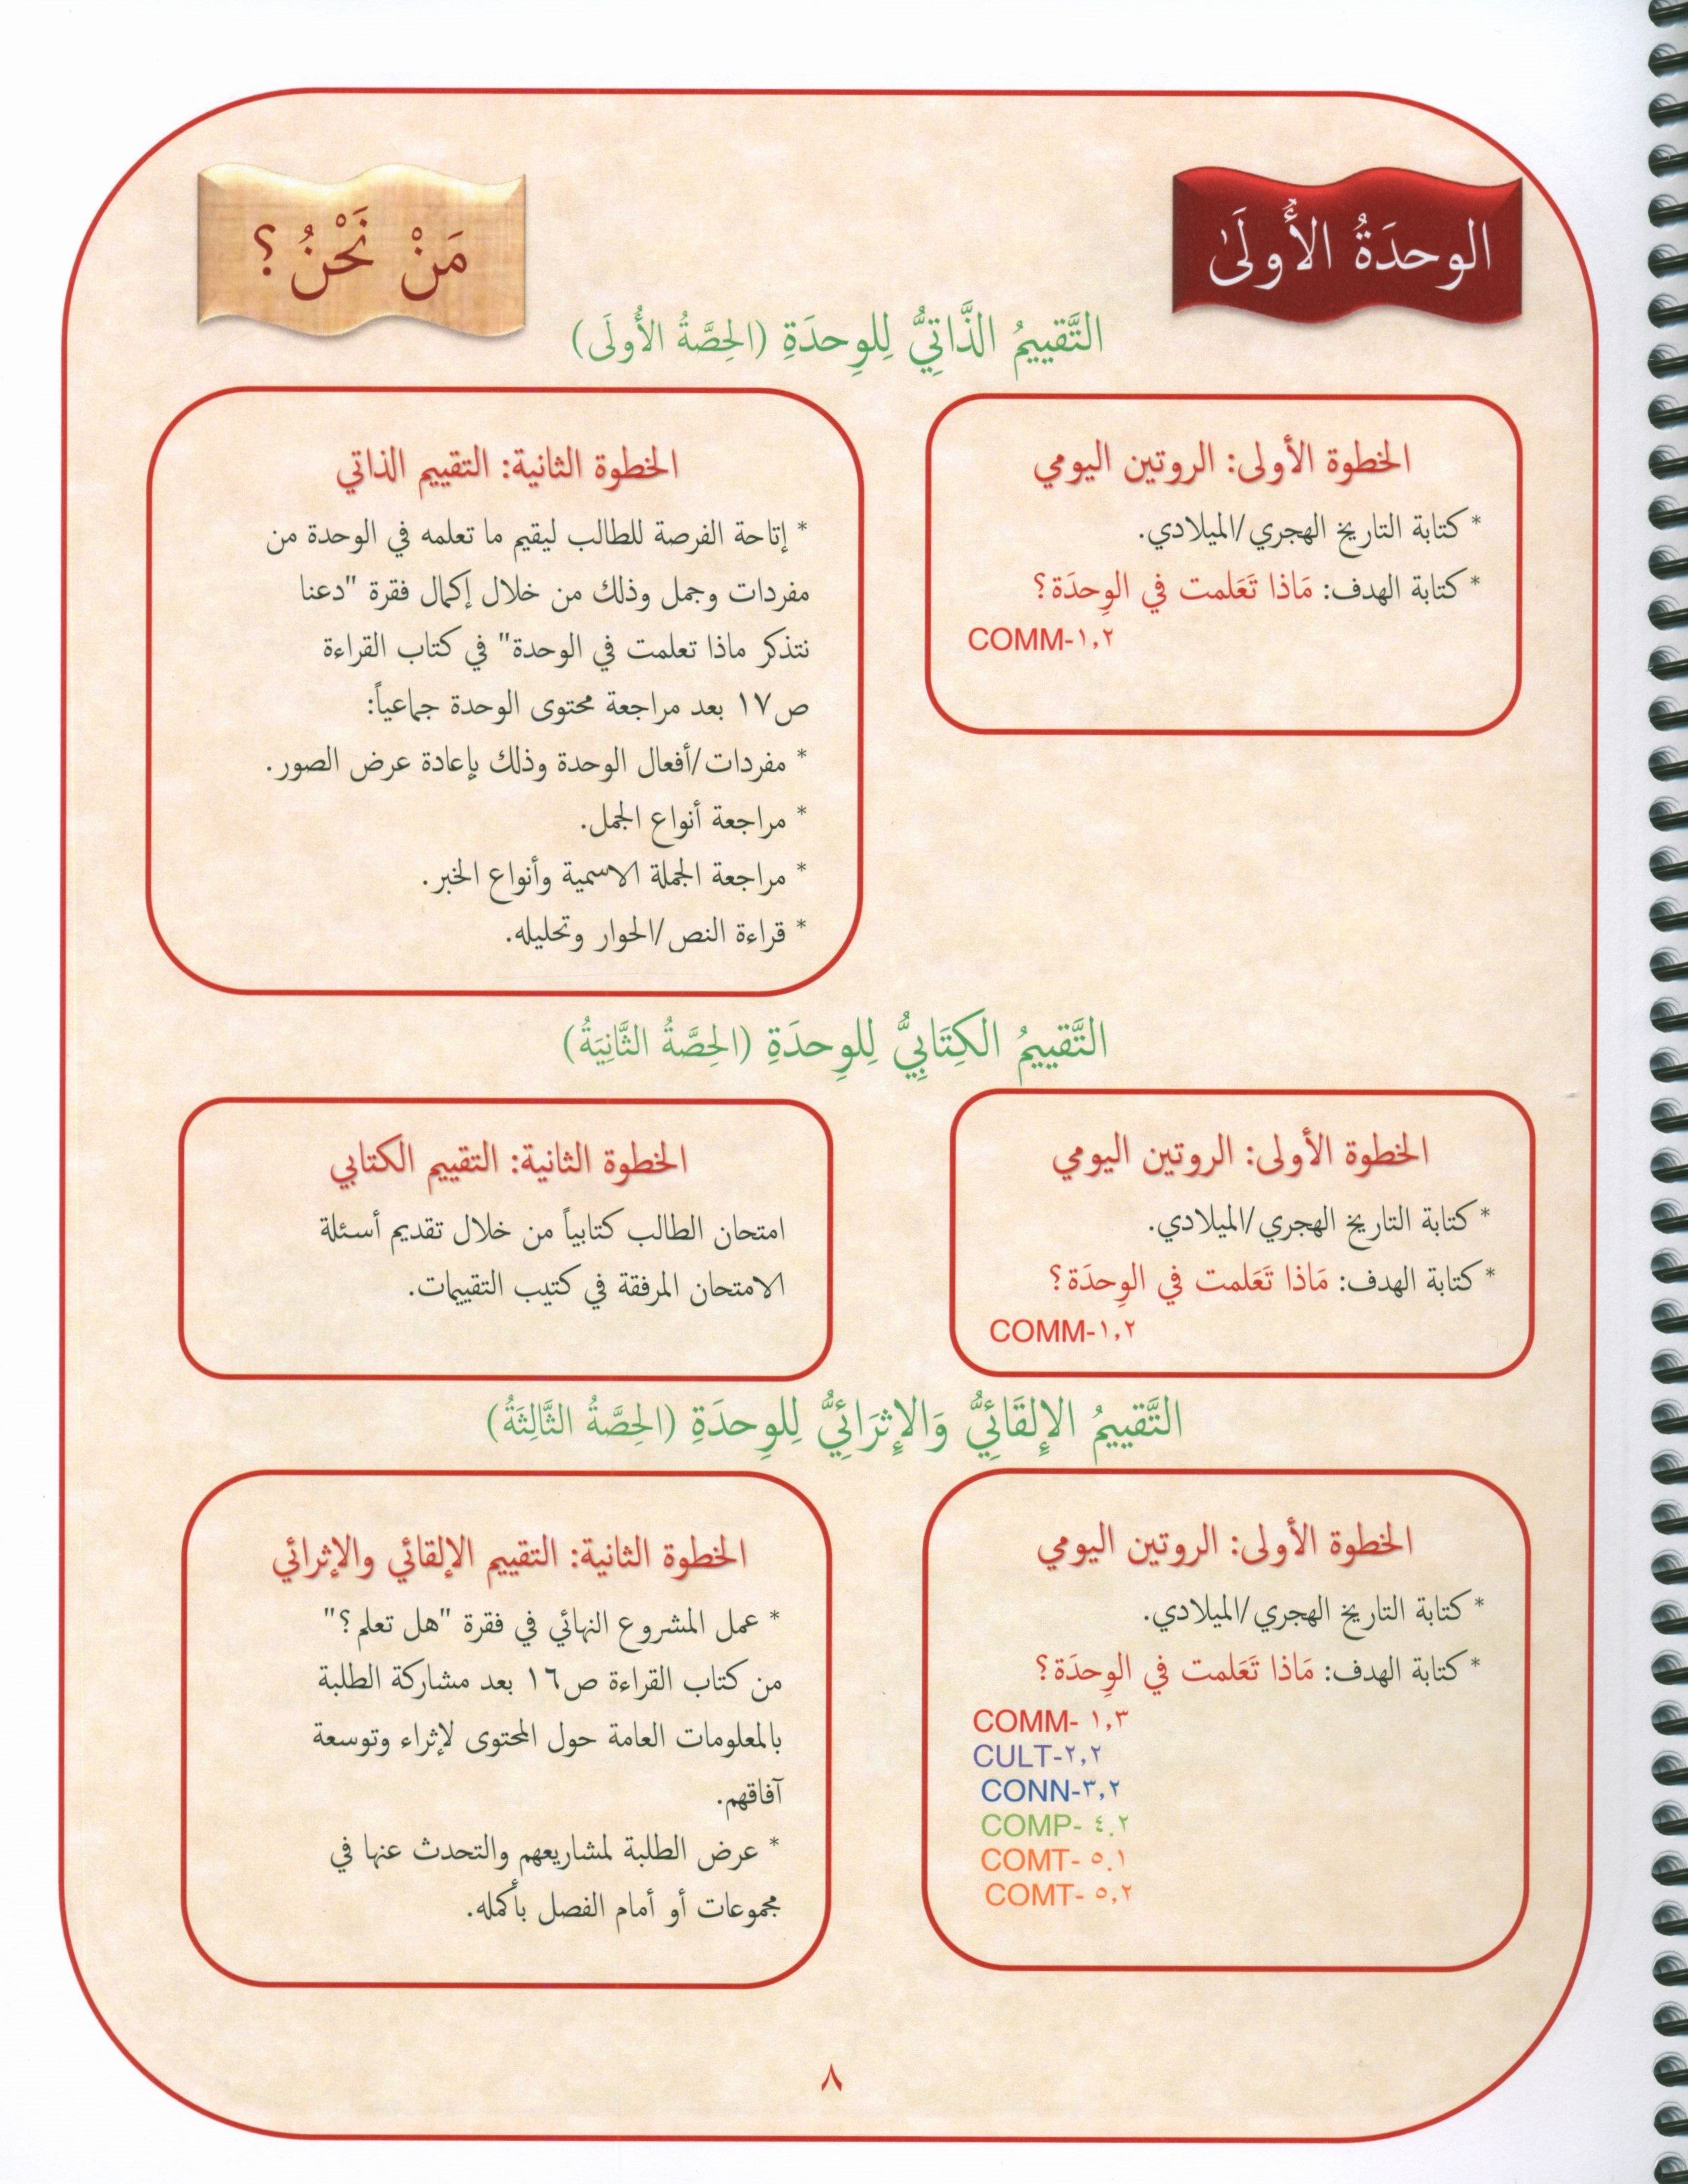 الوحدَةُ الأُولَىٰ
مَنْ نَحْنُ؟
التَّقييمُ الذَّاتِيُّ لِلوِحدَةِ (الحِصَّةُ الأُولَى)
الخطوة الأولى: الروتين اليومي
* كتابة التاريخ الهجري/الميلادي.
* كتابة الهدف: مَاذا تَعَلمت في الوِحدَة؟
COMM-١,٢
الخطوة الثانية: التقييم الذاتي
* إتاحة الفرصة للطالب ليقيم ما تعلمه في الوحدة من
مفردات وجمل وذلك من خلال إكمال فقرة "دعنا
نتذكر ماذا تعلمت في الوحدة" في كتاب القراءة
ص١٧ بعد مراجعة محتوى الوحدة جماعياً:
* مفردات/أفعال الوحدة وذلك بإعادة عرض الصور.
* مراجعة أنواع الجمل.
* مراجعة الجملة الاسمية وأنواع الخبر.
* قراءة النص/الحوار وتحليله.
التَّقييمُ الكِتَابِيُّ لِلوِحدَةِ (الحِصَّةُ الثَّانِيَةُ)
الخطوة الأولى: الروتين اليومي
* كتابة التاريخ الهجري/الميلادي.
* كتابة الهدف: مَاذا تَعَلمت في الوِحدَة؟
COMM-١,٢
الخطوة الثانية: التقييم الكتابي
امتحان الطالب كتابياً من خلال تقديم أسئلة
الامتحان المرفقة في كتيب التقييمات.
التَّقييمُ الإِلقَائِيُّ وَالإِثرَائِيُّ لِلوِحدَةِ (الحِصَّةُ الثَّالِثَةُ)
الخطوة الأولى: الروتين اليومي
* كتابة التاريخ الهجري/الميلادي.
* كتابة الهدف: مَاذا تَعَلمت في الوِحدَة؟
COMM- ١,٣
CULT-٢,٢
CONN-٣,٢
COMP- ٤.٢
COMT- ٥.١
COMT- ٥,٢
الخطوة الثانية: التقييم الإلقائي والإثرائي
* عمل المشروع النهائي في فقرة "هل تعلم؟"
من كتاب القراءة ص١٦ بعد مشاركة الطلبة
بالمعلومات العامة حول المحتوى لإثراء وتوسعة
آفاقهم.
* عرض الطلبة لمشاريعهم والتحدث عنها في
مجموعات أو أمام الفصل بأكمله.
٨